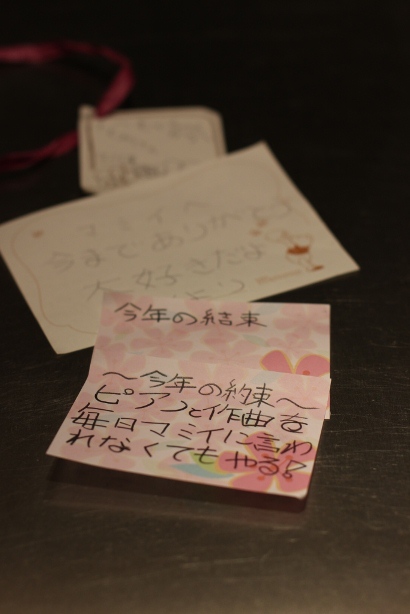 マミイへ
今までありがとう
大好きだよ
今年の結束
～今年の約束～
ピアノと作曲を
毎日マミイに言わ
れなくてもやる!